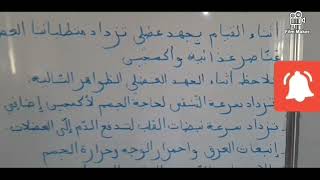 أثناء القيام بجهد عضلي تزداد متطلباتنا
عناصر غذائية وأكسجين
نلاحظ أثناء الجهد العضلي الظواهر التالية:
تزداد سرعة التنفس لحاجة الجسم لأكسجين إضافي
تزداد سرعة نبضات القلب لتدفع الدم إلى العضلات
إنبعاث العرق واحمرار الوجه وحرارة الجسم
Film Maker